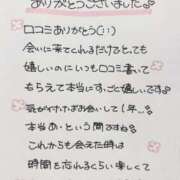 ありがとうございました
口コミありがとう(:3)
会いに来てくれるだけとても
嬉しいのにいつも口コミ書いて
もらえて本当にすごく嬉しです
気が付けばお会いして1年…
本当あっという間ですね
これからも会えた時は
時間を忘れるくらい楽しくて